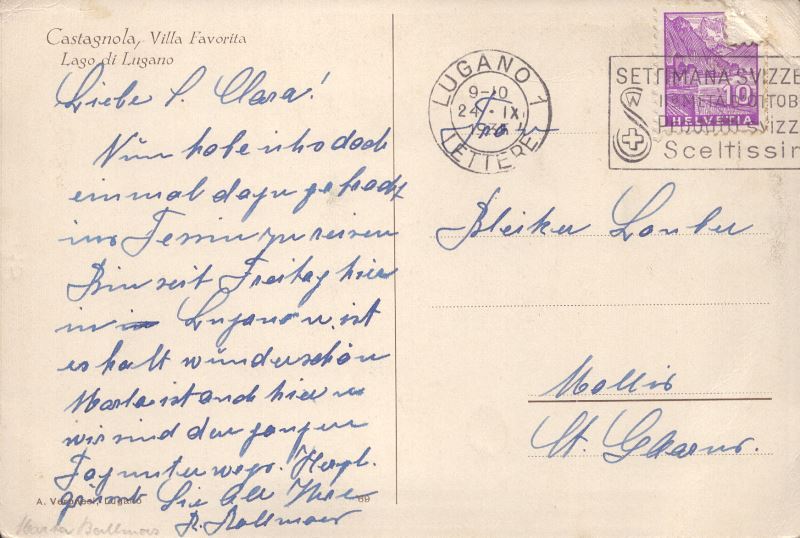 Castagnola, Villa Favorita
Lago di Lugano
Liebe S. Clara!
Nun habe ich doch
einmal dazu gebracht
ins Tessin zu reisen
Bin seit Freitag hier
in Lugano u. ist
es halt wunderschön
Marta ist auch hier u
wir sind den ganzen
Tag unterwegs. Herzl.
grüsst Sie alle Ihre
R. Ballmoos
A. Veronesi, Lugano
89
Marta Ballmoos
LUGANO 1
9-10
24. IX.
LETTERE
10
HELVETIA
SETTIMANA SVIZZE
METÀ D'OTTOB
PRODOTTO SVIZZ
Sceltissim
Frau
Bleiker Lauber
Mollis
Kt. Glarus.